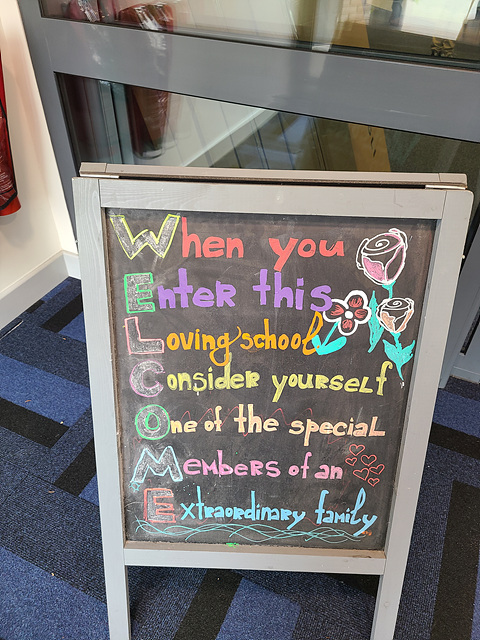 When you
Enter this
Loving school
Consider yourself
One of the special
Members of an
Extraordinary family